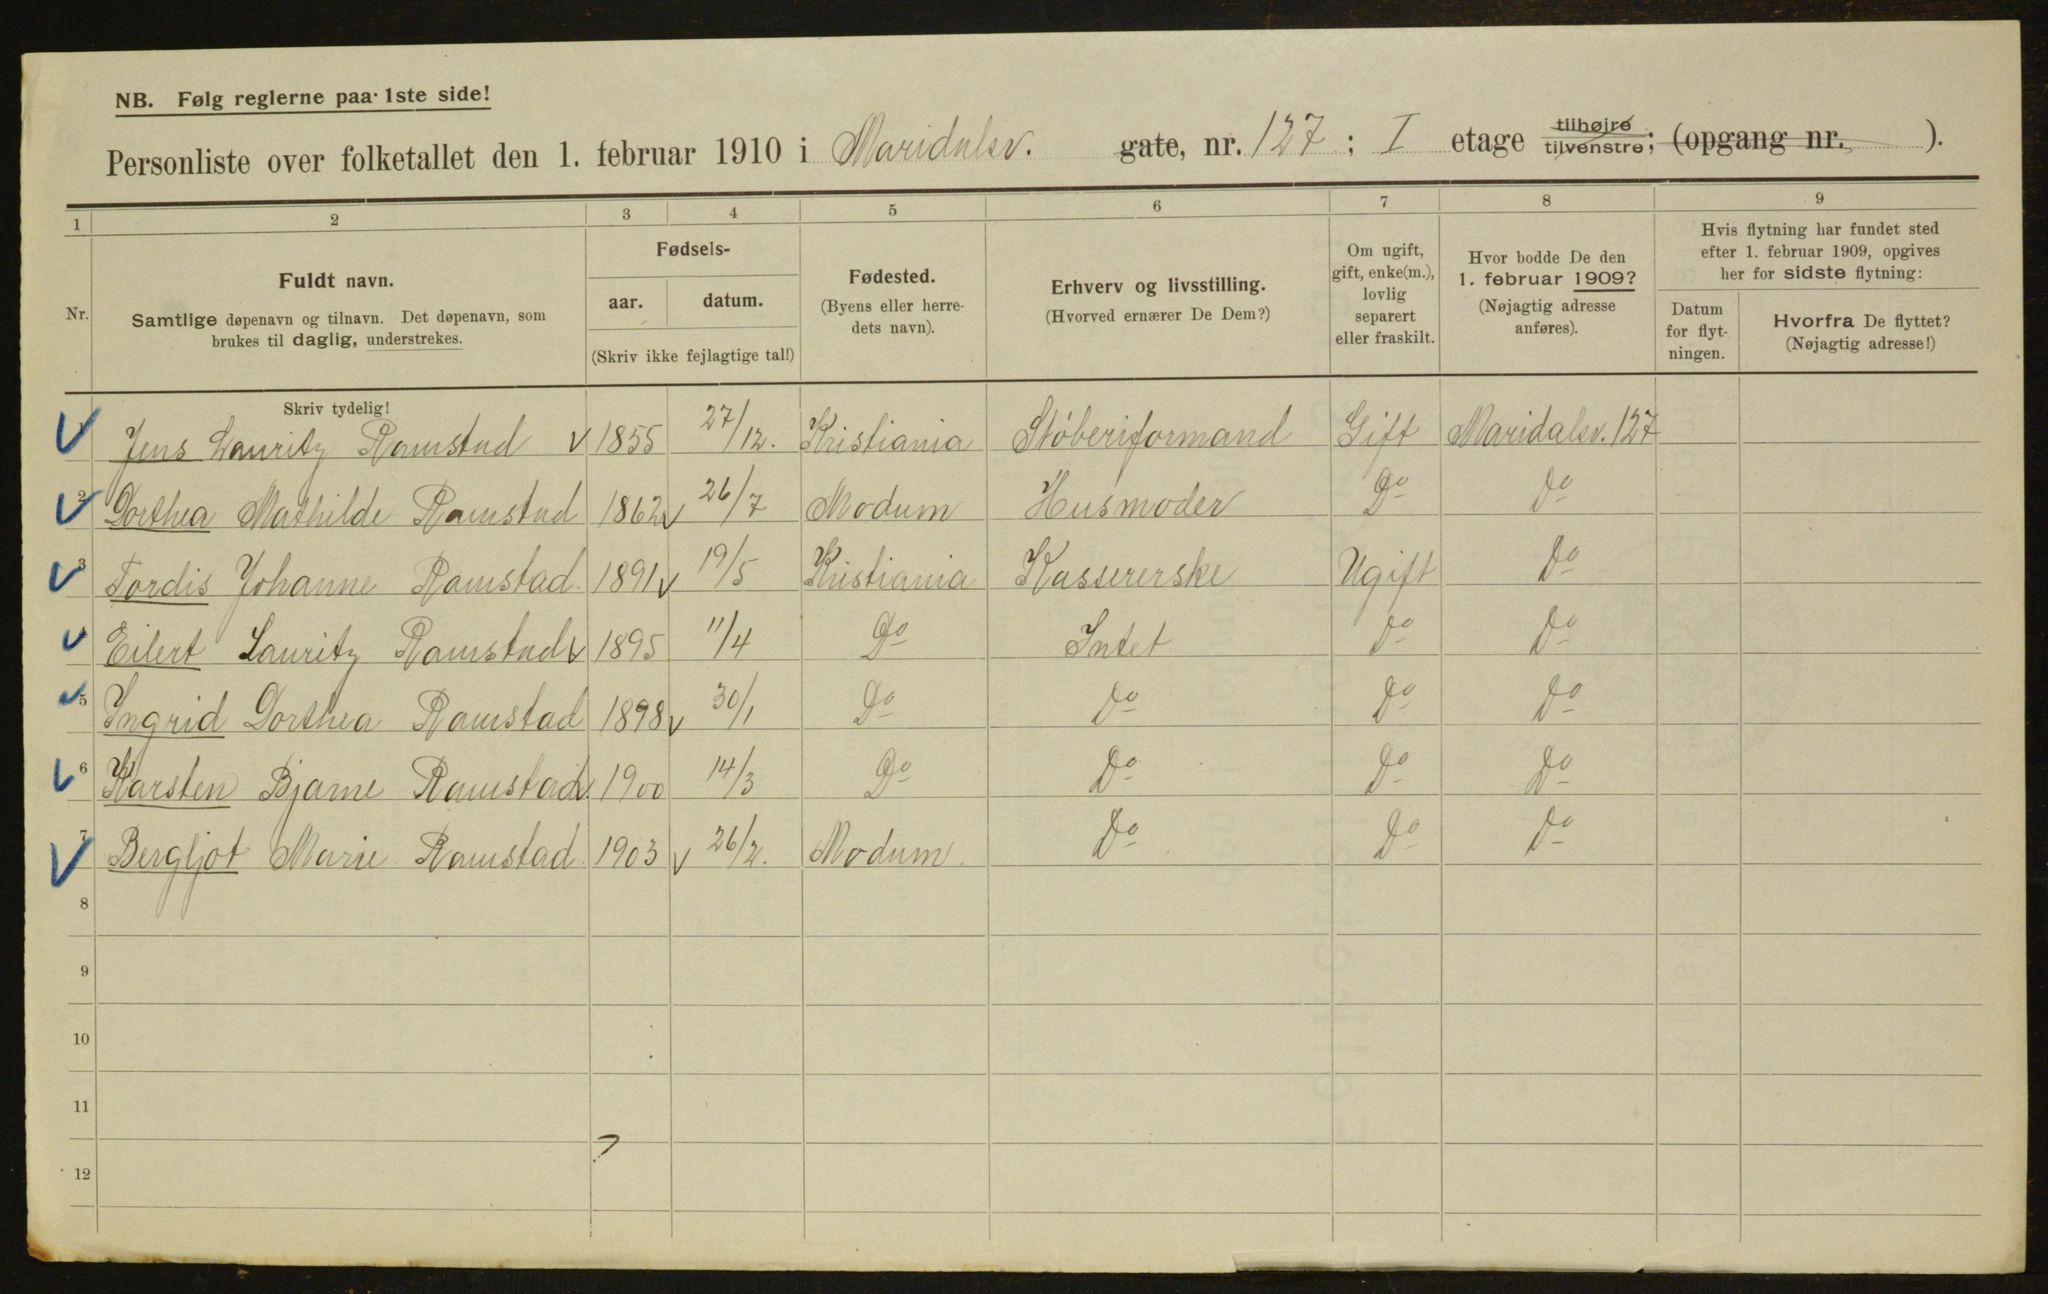 NB. Følg reglerne paa 1ste side!
Personliste over folketallet den 1. februar 1910 i Maridalsv. gate, nr. 127; I etage tilhøjre tilvenstre; (opgang nr. ).
1 2 3 4 5 6 7 8 9
Nr.
Fuldt navn.
Samtlige døpenavn og tilnavn. Det døpenavn, som
brukes til daglig, understrekes.
Fødsels-
aar. datum.
(Skriv ikke fejlagtige tal!)
Fødested.
(Byens eller herre-
dets navn).
Erhverv og livsstilling.
(Hvorved ernærer De Dem?)
Om ugift,
gift, enke(m.),
lovlig
separert
eller fraskilt.
Hvor bodde De den
1. februar 1909?
(Nøjagtig adresse
anføres).
Hvis flytning har fundet sted
efter 1. februar 1909, opgives
her for sidste flytning:
Datum
for flyt-
ningen.
Hvorfra De flyttet?
(Nøjagtig adresse!)
Skriv tydelig!
1 Jens Lauritz Ramstad 1855 27/12. Kristiania Støberiformand Gift Maridalsv. 127
2 Dorthea Mathilde Ramstad 1862 26/7 Modum Husmoder Do Do
3 Tordis Johanne Ramstad 1891 19/5 Kristiania Kassererske Ugift Do
4 Eilert Lauritz Ramstad 1895 11/4 Do Intet Do Do
5 Ingrid Dorthea Ramstad 1898 30/1 Do Do Do Do
6 Karsten Bjarne Ramstad 1900 14/3 Do Do Do Do
7 Bergljot Marie Ramstad 1903 26/2. Modum Do Do Do
8
9
10
11
12